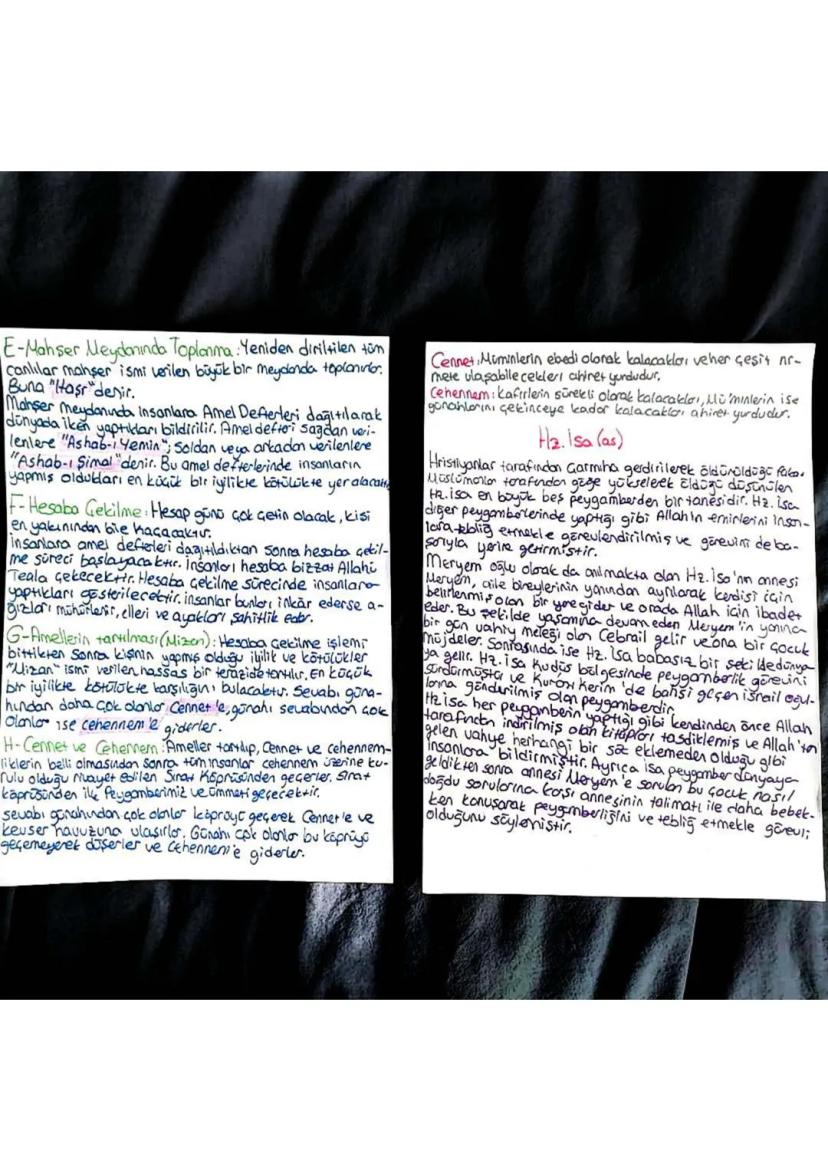 E-Mahşer Meydanında Toplanma: Yeniden diriltilen tüm
canlılar mahşer ismi verilen büyük bir meydanda toplanırlar.
Buna "Haşr" denir.
Mahşer meydanında insanlara Amel Defterleri dağıtılarak
dünyada iken yaptıkları bildirilir. Amel defteri sağdan veri-
lenlere "Ashab-ı Yemin"; Soldan veya arkadan verilenlere
"Ashab-ı Şimal" denir. Bu amel defterlerinde insanların
yapmış oldukları en küçük bir iyilikte kötülükte yer alacaktır.
F-Hesaba Çekilme: Hesap günü çok çetin olacak, kişi
en yakınından bile kaçacaktır.
İnsanlara amel defterleri dağıtıldıktan sonra hesaba çekil-
me süreci başlayacaktır. İnsanları hesaba bizzat Allahü
Teala çekecektir. Hesaba çekilme sürecinde insanlara
yaptıkları gösterilecektir. insanlar bunları inkâr ederse a-
ğızları mühürlenir, elleri ve ayakları şahitlik eder.
G-Amellerin tartılması (Mizan): Hesaba çekilme işlemi
bittikten sonra kişinin yapmış olduğu iyilik ve kötülükler
"Mizan" ismi verilen hassas bir terazide tartılır. En küçük
bir iyilikte kötülükte karşılığını bulacaktır. Sevabı güna-
hından daha çok olanlar Cennet'e, günahı sevabından çok
olanlar ise cehennem'e giderler.
H-Cennet ve Cehennem: Ameller tartılıp, Cennet ve cehennem-
liklerin belli olmasından sonra tüm insanlar cehennem üzerine ku-
rulu olduğu rivayet edilen Sırat Köprüsünden geçerler. Sırat
köprüsünden ilk Peygamberimiz ve ümmeti geçecektir.
sevabı günahından çok olanlar köprüyü geçerek Cennet'e ve
kevser havuzuna ulaşırlar. Günahı çok olanlar bu köprüyü
geçemeyerek düşerler ve Cehennem'e giderler.
Cennet: Müminlerin ebedi olarak kalacakları ve her çeşit ni-
mete ulaşabilecekleri ahiret yurdudur.
Cehennem: kafirlerin sürekli olarak kalacakları, Mü'minlerin ise
günahlarını çekinceye kadar kalacakları ahiret yurdudur.
Hz. İsa (as)
Hristiyanlar tarafından Çarmıha gerdirilerek öldürüldüğü
Müslümanlar tarafından göğe yükselerek öldüğü düşünülen
Hz. isa en büyük beş peygamberden bir tanesidir. Hz. İsa
diğer peygamberlerinde yaptığı gibi Allahın emirlerini insan-
lara tebliğ etmekle görevlendirilmiş ve görevini de ba-
şarıyla yerine getirmiştir.
Meryem oğlu olarak da anılmakta olan Hz. İsa'nın annesi
Meryem, aile bireylerinin yanından ayrılarak kendisi için
belirlenmiş olan bir yere gider ve orada Allah için ibadet
eder. Bu şekilde yaşamına devam eden Meryem'in yanına
bir gün vahiy meleği olan Cebrail gelir ve ona bir çocuk
müjdeler. Sonrasında ise Hz. İsa babasız bir şekilde dünya
ya gelir. Hz. İsa Kudüs bölgesinde peygamberlik görevini
sürdürmüştü ve Kuran Kerim'de bahsi geçen israil oğul-
larına gönderilmiş olan peygamberdir.
Hz isa her peygamberin yaptığı gibi kendinden önce Allah
tarafından indirilmiş olan kitapları tasdiklemiş ve Allah'tan
gelen vahye herhangi bir söz eklemeden olduğu gibi
insanlara bildirmiştir. Ayrıca isa peygamber dünyaya
geldikten sonra annesi Meryem'e sorulan bu çocuk nasıl
doğdu sorularına karşı annesinin talimatı ile daha bebek-
ken konuşarak peygamberliğini ve tebliğ etmekle görevli
olduğunu söylemiştir.